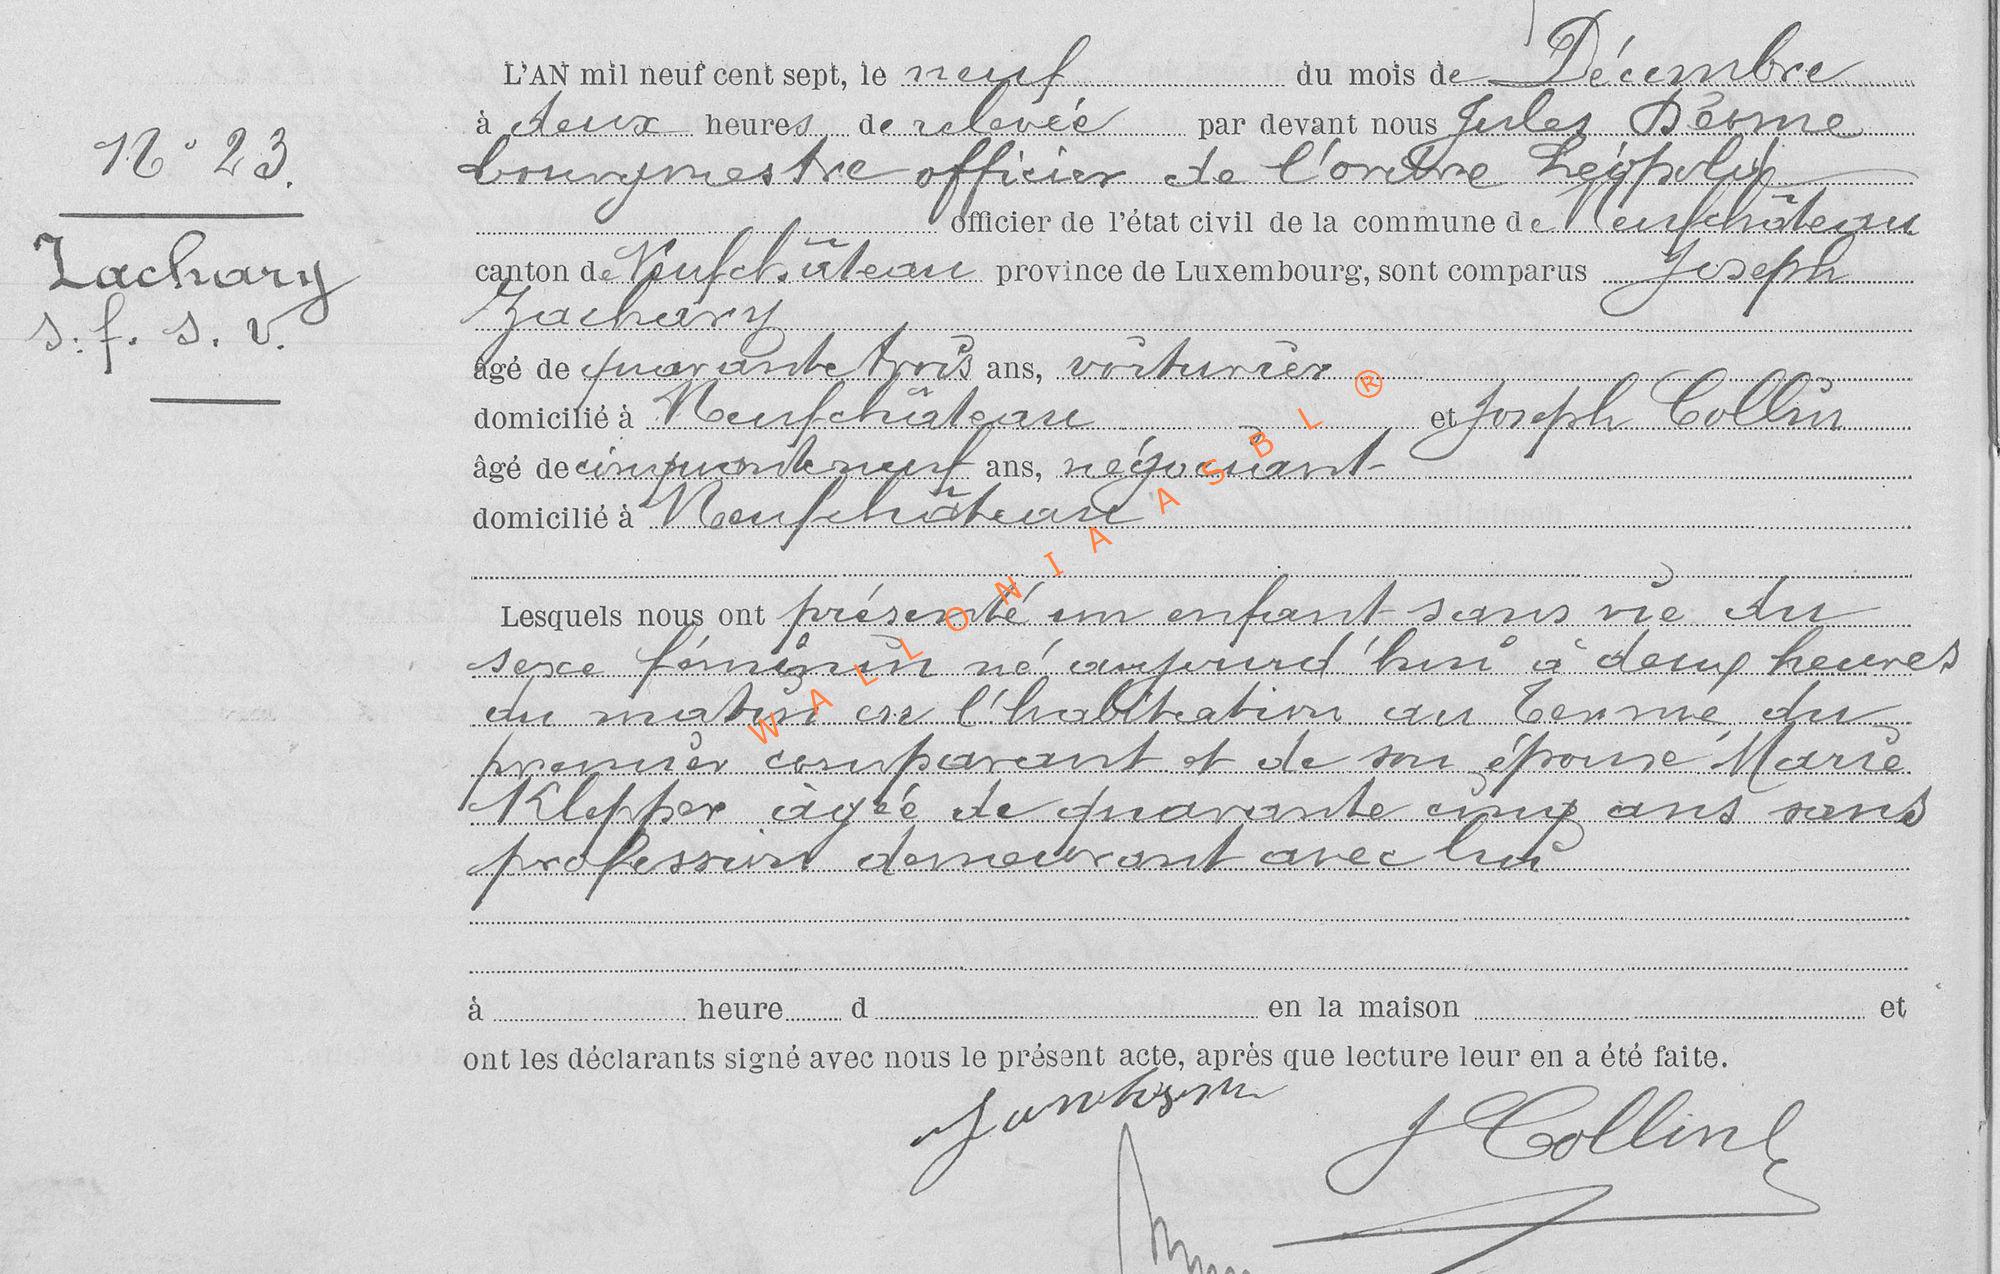 N° 23.
Zachary
s. f. s. v.
L'AN mil neuf cent sept, le neuf du mois de Décembre
à deux heures de relevée par devant nous Jules
bourgmestre officier de l'ordre Léopold
officier de l'état civil de la commune de Neufchâteau
canton de Neufchâteau province de Luxembourg, sont comparus Joseph
Zachary
âgé de quarante trois ans, voiturier
domicilié à Neufchâteau et Joseph Collin
âgé de cinquante neuf ans, négociant
domicilié à Neufchâteau
Lesquels nous ont présenté un enfant sans vie du
sexe féminin né aujourd'hui à deux heures
du matin en l'habitation au Terme du
premier comparant et de son épouse Marie
Klepper âgée de quarante cinq ans sans
profession demeurant avec lui
à heure d en la maison et
ont les déclarants signé avec nous le présent acte, après que lecture leur en a été faite.
J Collin
WALLONIA ASBL ®